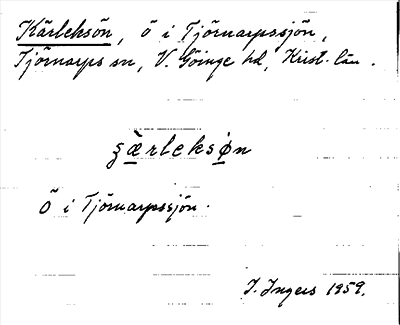 Kärleksön, ö i Tjörnarpssjön,
Tjörnarps sn, V. Göinge hd, Krist. län.
ʂæ̀rleksøn
Ö i Tjörnarpssjön.
I. Ingers 1959.